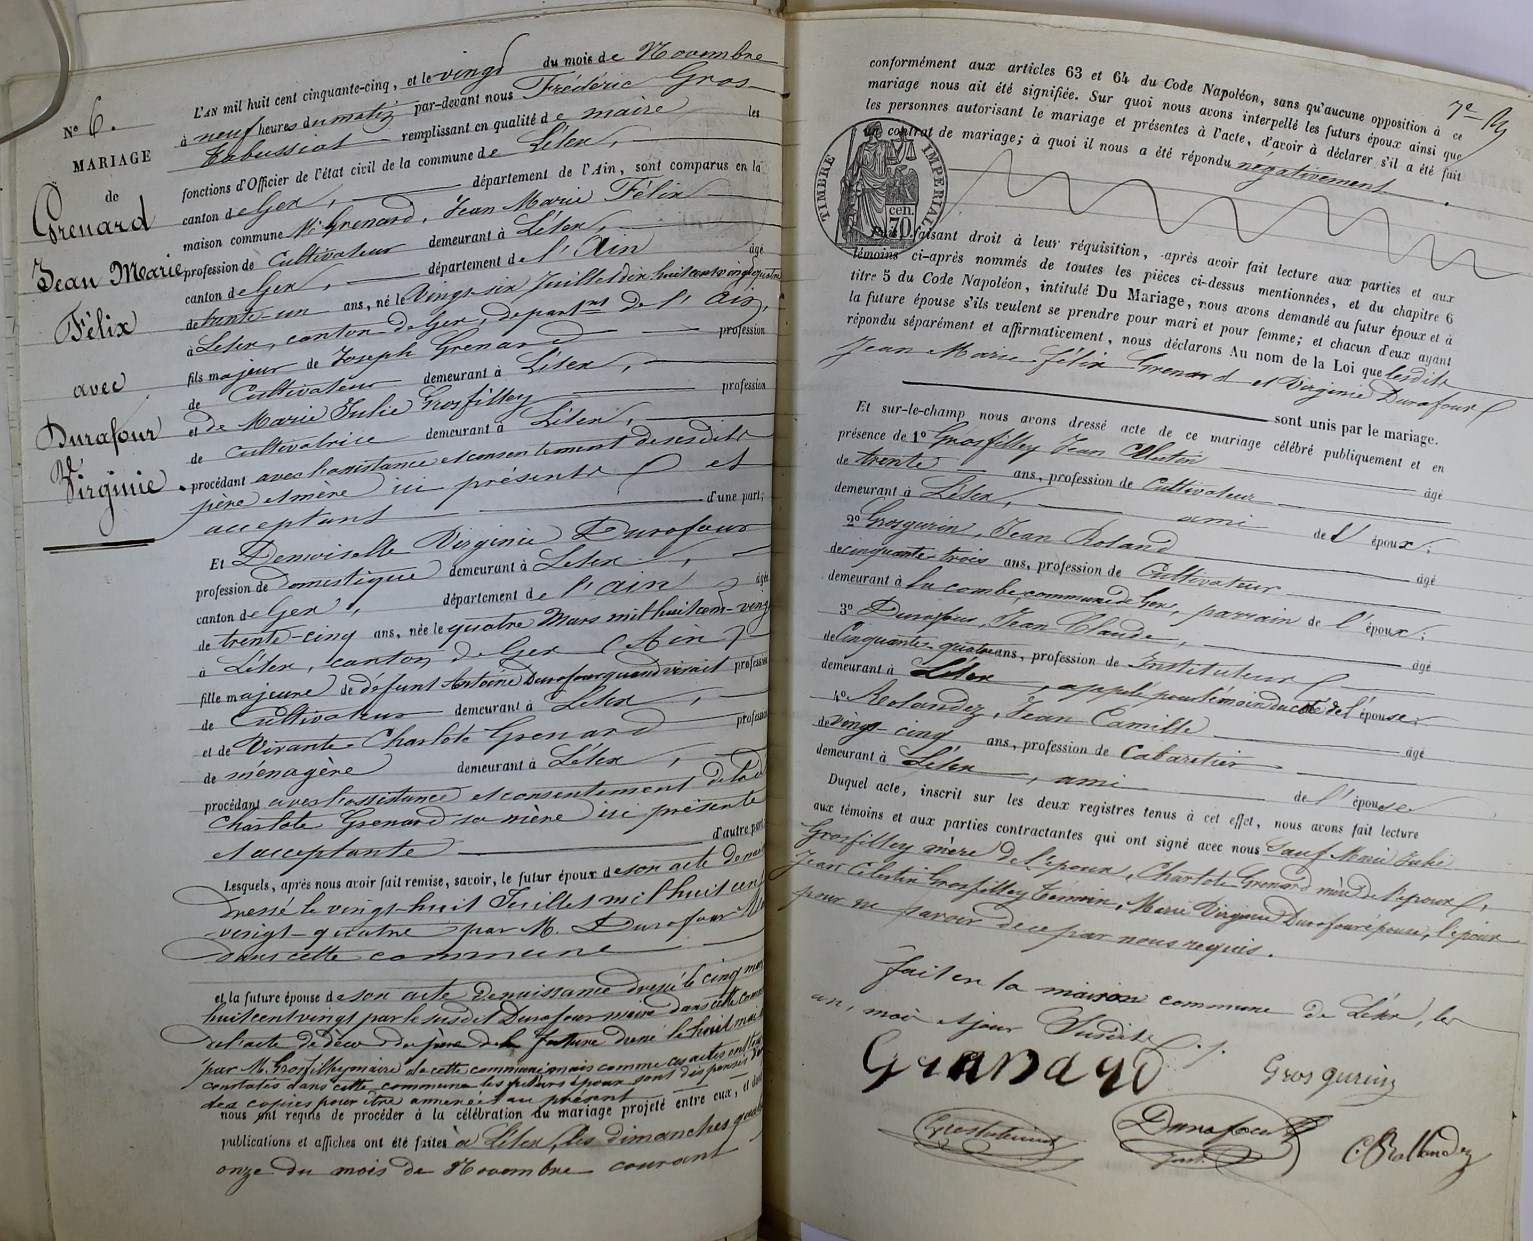 No 6.
MARIAGE
de
Grenard
Jean Marie
Félix
avec
Durafour
Virginie
L'AN mil huit cent cinquante-cinq, et le vingt du mois de Novembre
à neuf heures du matin par-devant nous Frédéric Gros-
Tabussiat remplissant en qualité de maire les
fonctions d'Officier de l'état civil de la commune de Lélex,
canton de Gex, département de l'Ain, sont comparus en la
maison commune Mr Grenard, Jean Marie Félix
profession de Cultivateur demeurant à Lélex,
canton de Gex, département de l'Ain âgé
de trente-un ans, né le Vingt-six Juillet dix huit cent vingt quatre
à Lélex, canton de Gex, départmt de l'Ain,
fils majeur de Joseph Grenard profession
de Cultivateur demeurant à Lélex,
et de Marie Julie Grosfilley profession
de Cultivatrice demeurant à Lélex,
procédant avec l'assistance et consentement de sesdits
père et mère ici présents et
acceptant d'une part;
Et Demoiselle Virginie Durafour
profession de domestique demeurant à Lélex,
canton de Gex, département de l'Ain âgée
de trente-cinq ans, née le quatre Mars mil huit cent-vingt
à Lélex, canton de Gex (Ain)
fille majeure de défunt Antoine Durafour quand vivait profession
de Cultivateur demeurant à Lélex,
et de Vivante Charlote Grenard profession
de ménagère demeurant à Lélex,
procédant avec l'assistance et consentement de lad
Charlote Grenard sa mère ici présente
et acceptante d'autre part;
Lesquels, après nous avoir fait remise, savoir, le futur époux de son acte de
dressé le vingt-huit Juillet mil huit cent
vingt-quatre par M. Durafour
dans cette commune
et la future épouse de son acte de naissance dressé le cinq mars
huit cent vingt par le susdit Durafour maire dans cette
de l'acte de décès du père de la future dressé le huit mai
par M. Grosfilley maire de cette commune mais comme ces actes ont
constatés dans cette commune les futurs époux sont dispensés
des copies pour être annexées au présent
nous ont requis de procéder à la célébration du mariage projeté entre eux, et dont
publications et affiches ont été faites à Lélex, les dimanches quatre
onze du mois de Novembre courant
7e
conformément aux articles 63 et 64 du Code Napoléon, sans qu'aucune opposition à ce
mariage nous ait été signifiée. Sur quoi nous avons interpellé les futurs époux ainsi que
les personnes autorisant le mariage et présentes à l'acte, d'avoir à déclarer s'il a été fait
un contrat de mariage; à quoi il nous a été répondu négativement.
TIMBRE IMPERIAL
70 cen.
Puis, faisant droit à leur réquisition, après avoir fait lecture aux parties et aux
témoins ci-après nommés de toutes les pièces ci-dessus mentionnées, et du chapitre 6
titre 5 du Code Napoléon, intitulé Du Mariage, nous avons demandé au futur époux et à
la future épouse s'ils veulent se prendre pour mari et pour femme; et chacun d'eux ayant
répondu séparément et affirmativement, nous déclarons Au nom de la Loi que lesdits
Jean Marie Félix Grenard et Virginie Durafour
sont unis par le mariage.
Et sur-le-champ nous avons dressé acte de ce mariage célébré publiquement et en
présence de 1o Grosfilley Jean Célestin âgé
de trente ans, profession de Cultivateur
demeurant à Lélex, ami de l'époux;
2o Grosgurin, Jean Roland âgé
de cinquante-trois ans, profession de Cultivateur
demeurant à la combe, commune de Gex, parrain de l'époux;
3o Durafour, Jean Claude, âgé
de Cinquante-quatre ans, profession de Instituteur
demeurant à Lélex, appelé pour témoin du côté de l'épouse;
4o Rolandez, Jean Camille âgé
de vingt-cinq ans, profession de Cabaretier
demeurant à Lélex, ami de l'épouse
Duquel acte, inscrit sur les deux registres tenus à cet effet, nous avons fait lecture
aux témoins et aux parties contractantes qui ont signé avec nous Sauf Marie Julie
Grosfilley mère de l'époux, Charlote Grenard mère de l'épouse,
Jean Célestin Grosfilley témoin, Marie Virginie Durafour épouse,
pour ne savoir de ce par nous requis.
fait en la maison commune de Lélex, les
an, mois et jour Susdits
GRENARD
Grosgurin
Durafour
C. Rollandez